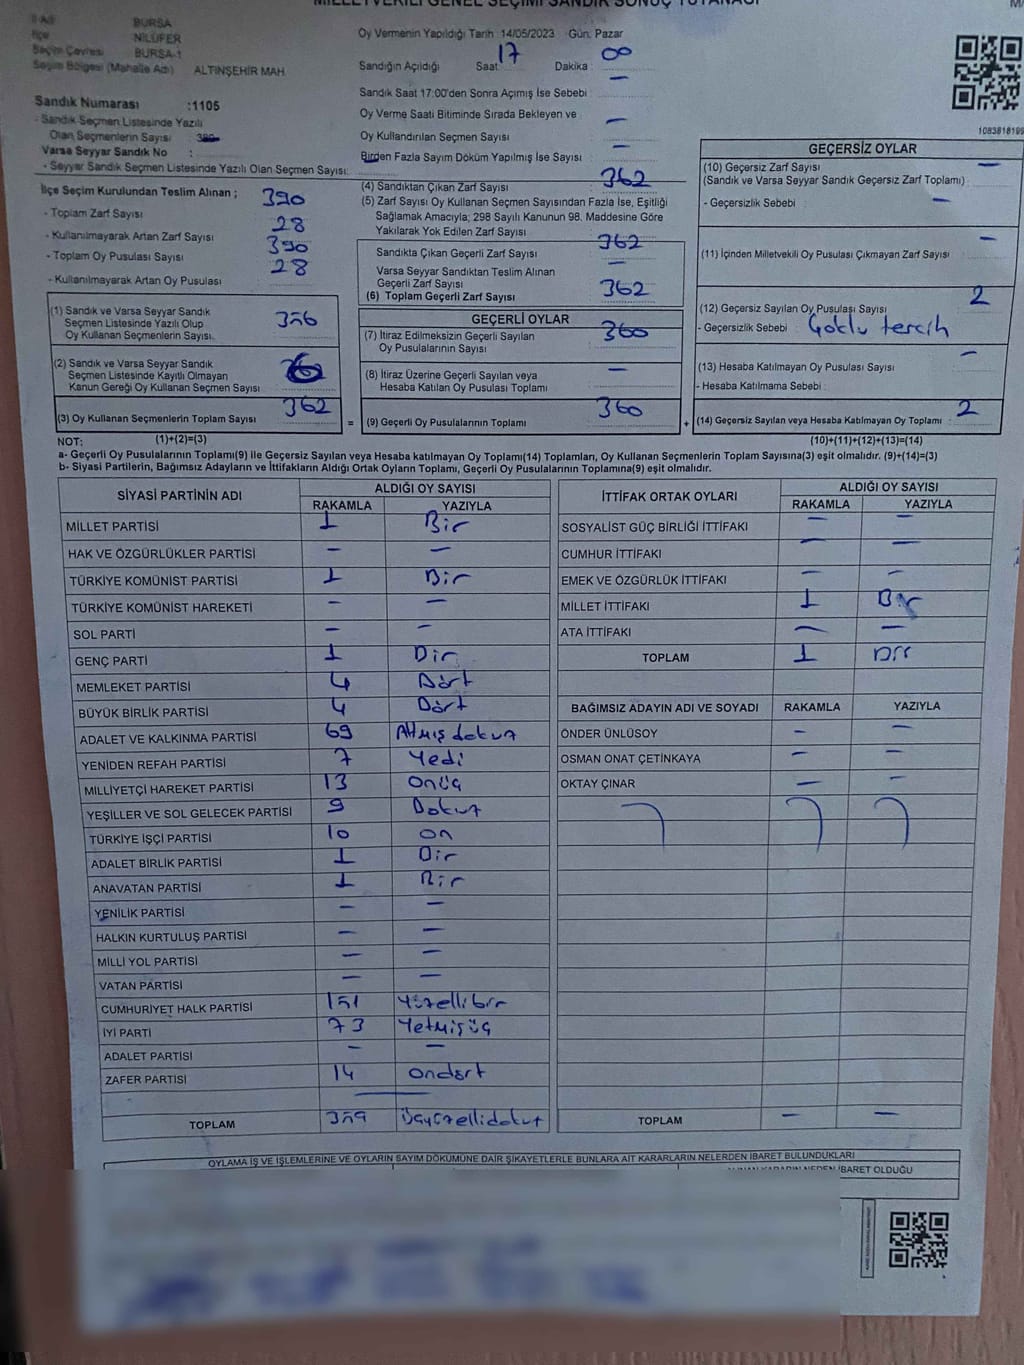 MİLLETVEKİLİ GENEL SEÇİMİ SANDIK SONUÇ TUTANAĞI
İl Adı BURSA
İlçe NİLÜFER
Seçim Çevresi BURSA-1
Seçim Bölgesi (Mahalle Adı) ALTINŞEHİR MAH.
Sandık Numarası :1105
- Sandık Seçmen Listesinde Yazılı
Olan Seçmenlerin Sayısı :
Varsa Seyyar Sandık No :
- Seyyar Sandık Seçmen Listesinde Yazılı Olan Seçmen Sayısı:
İlçe Seçim Kurulundan Teslim Alınan ;
- Toplam Zarf Sayısı 390
- Kullanılmayarak Artan Zarf Sayısı 28
- Toplam Oy Pusulası Sayısı 390
- Kullanılmayarak Artan Oy Pusulası 28
(1) Sandık ve Varsa Seyyar Sandık
Seçmen Listesinde Yazılı Olup
Oy Kullanan Seçmenlerin Sayısı. 356
(2) Sandık ve Varsa Seyyar Sandık
Seçmen Listesinde Kayıtlı Olmayan
Kanun Gereği Oy Kullanan Seçmen Sayısı 6
(3) Oy Kullanan Seçmenlerin Toplam Sayısı 362
Oy Vermenin Yapıldığı Tarih : 14/05/2023 Gün: Pazar
Sandığın Açıldığı Saat 17 Dakika : 00
Sandık Saat 17:00'den Sonra Açımış İse Sebebi : —
Oy Verme Saati Bitiminde Sırada Bekleyen ve
Oy Kullandırılan Seçmen Sayısı : —
Birden Fazla Sayım Döküm Yapılmış İse Sayısı : —
(4) Sandıktan Çıkan Zarf Sayısı 362
(5) Zarf Sayısı Oy Kullanan Seçmen Sayısından Fazla İse, Eşitliği
Sağlamak Amacıyla; 298 Sayılı Kanunun 98. Maddesine Göre
Yakılarak Yok Edilen Zarf Sayısı
Sandıkta Çıkan Geçerli Zarf Sayısı 362
Varsa Seyyar Sandıktan Teslim Alınan
Geçerli Zarf Sayısı —
(6) Toplam Geçerli Zarf Sayısı 362
GEÇERLİ OYLAR
(7) İtiraz Edilmeksizin Geçerli Sayılan
Oy Pusulalarının Sayısı 360
(8) İtiraz Üzerine Geçerli Sayılan veya
Hesaba Katılan Oy Pusulası Toplamı —
= (9) Geçerli Oy Pusulalarının Toplamı 360
1083818199
GEÇERSİZ OYLAR
(10) Geçersiz Zarf Sayısı —
(Sandık ve Varsa Seyyar Sandık Geçersiz Zarf Toplamı) :
- Geçersizlik Sebebi : —
(11) İçinden Milletvekili Oy Pusulası Çıkmayan Zarf Sayısı —
(12) Geçersiz Sayılan Oy Pusulası Sayısı 2
- Geçersizlik Sebebi : Çoklu tercih
(13) Hesaba Katılmayan Oy Pusulası Sayısı —
- Hesaba Katılmama Sebebi :
+ (14) Geçersiz Sayılan veya Hesaba Katılmayan Oy Toplamı 2
NOT: (1)+(2)=(3) (10)+(11)+(12)+(13)=(14)
a- Geçerli Oy Pusulalarının Toplamı(9) ile Geçersiz Sayılan veya Hesaba katılmayan Oy Toplamı(14) Toplamları, Oy Kullanan Seçmenlerin Toplam Sayısına(3) eşit olmalıdır. (9)+(14)=(3)
b- Siyasi Partilerin, Bağımsız Adayların ve İttifakların Aldığı Ortak Oyların Toplamı, Geçerli Oy Pusulalarının Toplamına(9) eşit olmalıdır.
SİYASİ PARTİNİN ADI ALDIĞI OY SAYISI
RAKAMLA YAZIYLA
MİLLET PARTİSİ 1 Bir
HAK VE ÖZGÜRLÜKLER PARTİSİ — —
TÜRKİYE KOMÜNİST PARTİSİ 1 Bir
TÜRKİYE KOMÜNİST HAREKETİ — —
SOL PARTİ — —
GENÇ PARTİ 1 Bir
MEMLEKET PARTİSİ 4 Dört
BÜYÜK BİRLİK PARTİSİ 4 Dört
ADALET VE KALKINMA PARTİSİ 69 Altmış dokuz
YENİDEN REFAH PARTİSİ 7 Yedi
MİLLİYETÇİ HAREKET PARTİSİ 13 Onüç
YEŞİLLER VE SOL GELECEK PARTİSİ 9 Dokuz
TÜRKİYE İŞÇİ PARTİSİ 10 on
ADALET BİRLİK PARTİSİ 1 Bir
ANAVATAN PARTİSİ 1 Bir
YENİLİK PARTİSİ — —
HALKIN KURTULUŞ PARTİSİ — —
MİLLİ YOL PARTİSİ — —
VATAN PARTİSİ — —
CUMHURİYET HALK PARTİSİ 151 Yüzellibir
İYİ PARTİ 73 Yetmişüç
ADALET PARTİSİ — —
ZAFER PARTİSİ 14 ondört
TOPLAM 359 Üçyüzellidokuz
İTTİFAK ORTAK OYLARI ALDIĞI OY SAYISI
RAKAMLA YAZIYLA
SOSYALİST GÜÇ BİRLİĞİ İTTİFAKI — —
CUMHUR İTTİFAKI — —
EMEK VE ÖZGÜRLÜK İTTİFAKI — —
MİLLET İTTİFAKI 1 Bir
ATA İTTİFAKI — —
TOPLAM 1 Bir
BAĞIMSIZ ADAYIN ADI VE SOYADI RAKAMLA YAZIYLA
ÖNDER ÜNLÜSOY — —
OSMAN ONAT ÇETİNKAYA — —
OKTAY ÇINAR — —
TOPLAM — —
OYLAMA İŞ VE İŞLEMLERİNE VE OYLARIN SAYIM DÖKÜMÜNE DAİR ŞİKAYETLERLE BUNLARA AİT KARARLARIN NELERDEN İBARET BULUNDUKLARI
ALINAN KARARIN NEDEN İBARET OLDUĞU